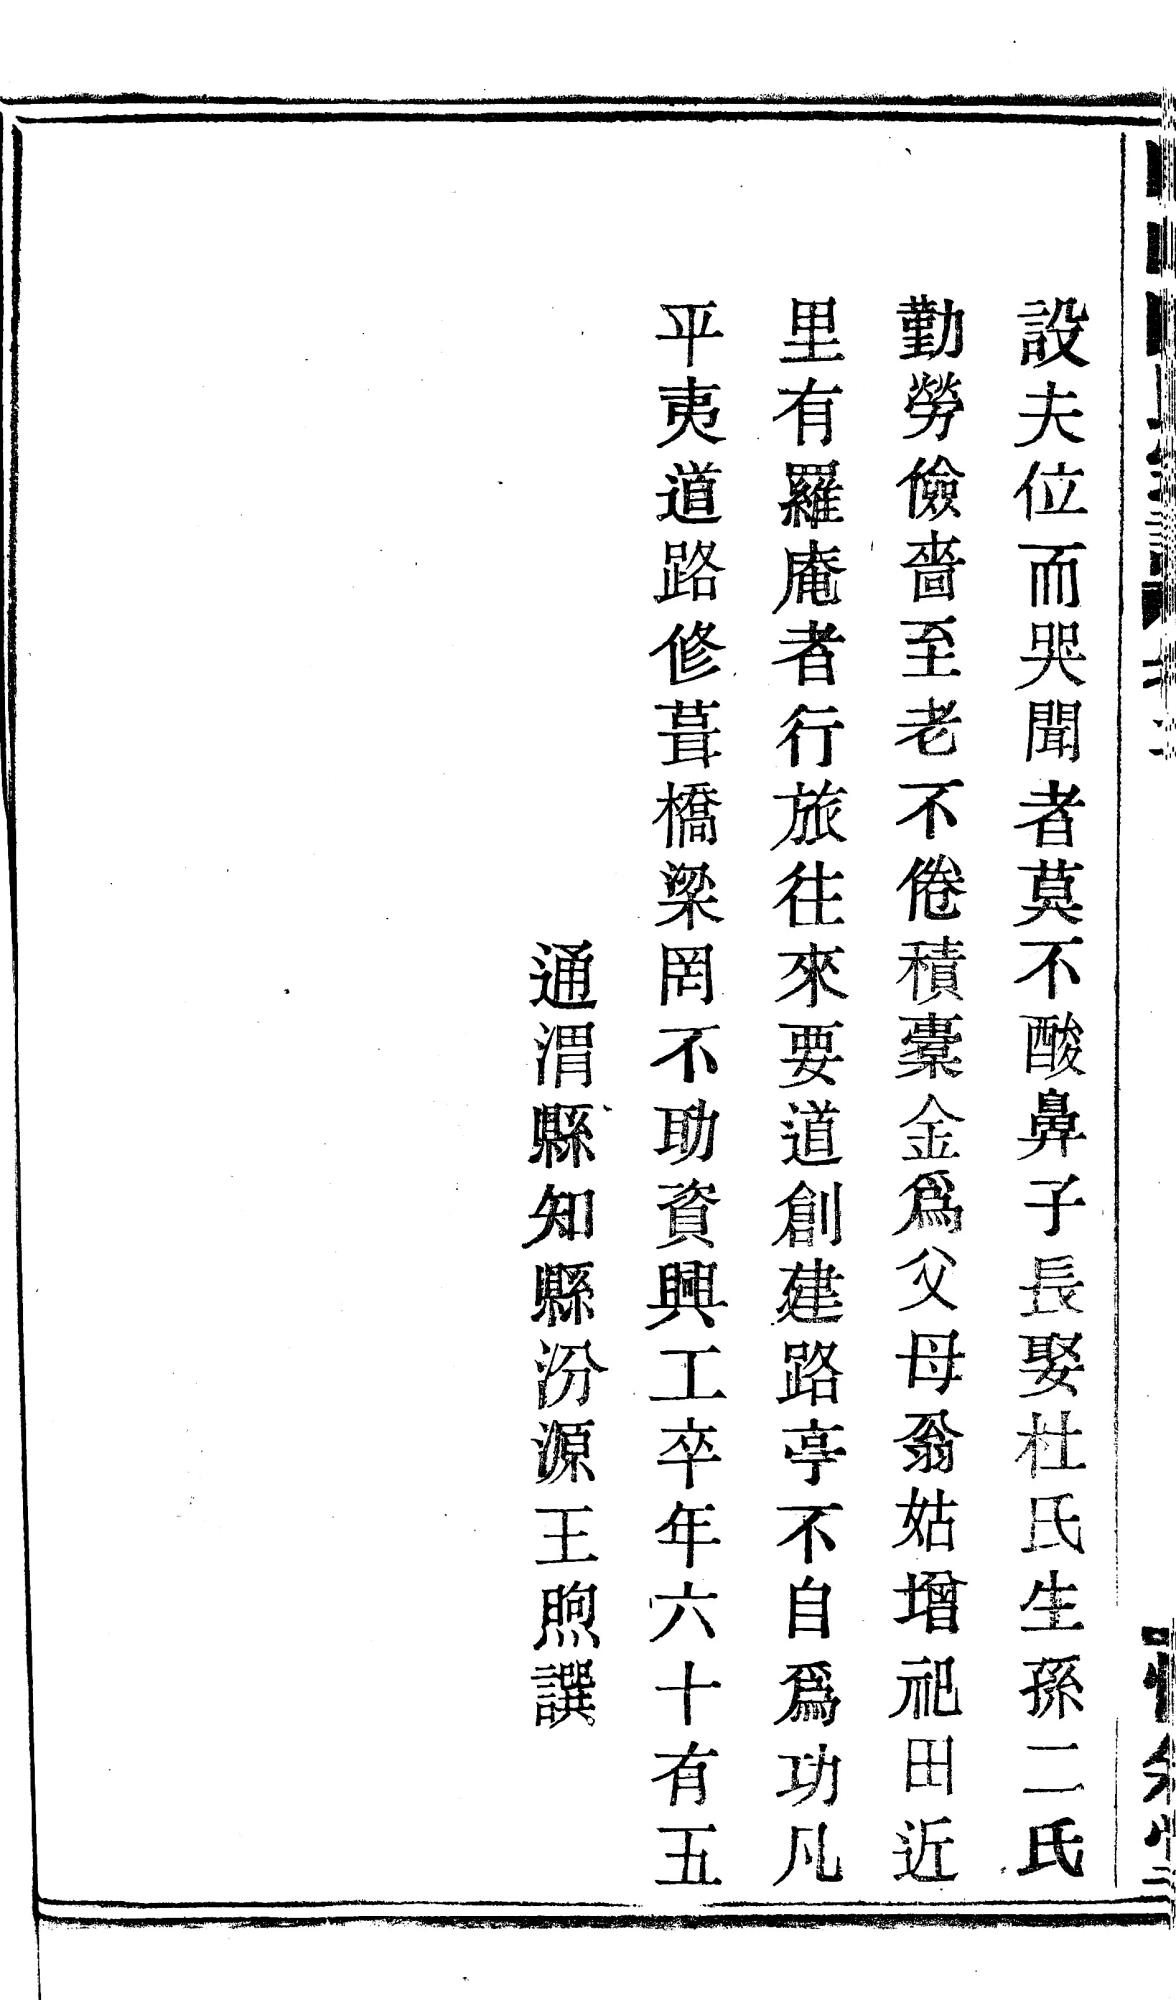 設夫位而哭聞者莫不酸鼻子長娶杜氏生孫二氏
勤勞儉嗇至老不倦積橐金爲父母翁姑增祀田近
里有羅庵者行旅往來要道創建路亭不自爲功凡
平夷道路修葺橋梁罔不助資興工卒年六十有五
通渭縣知縣汾源王煦譔